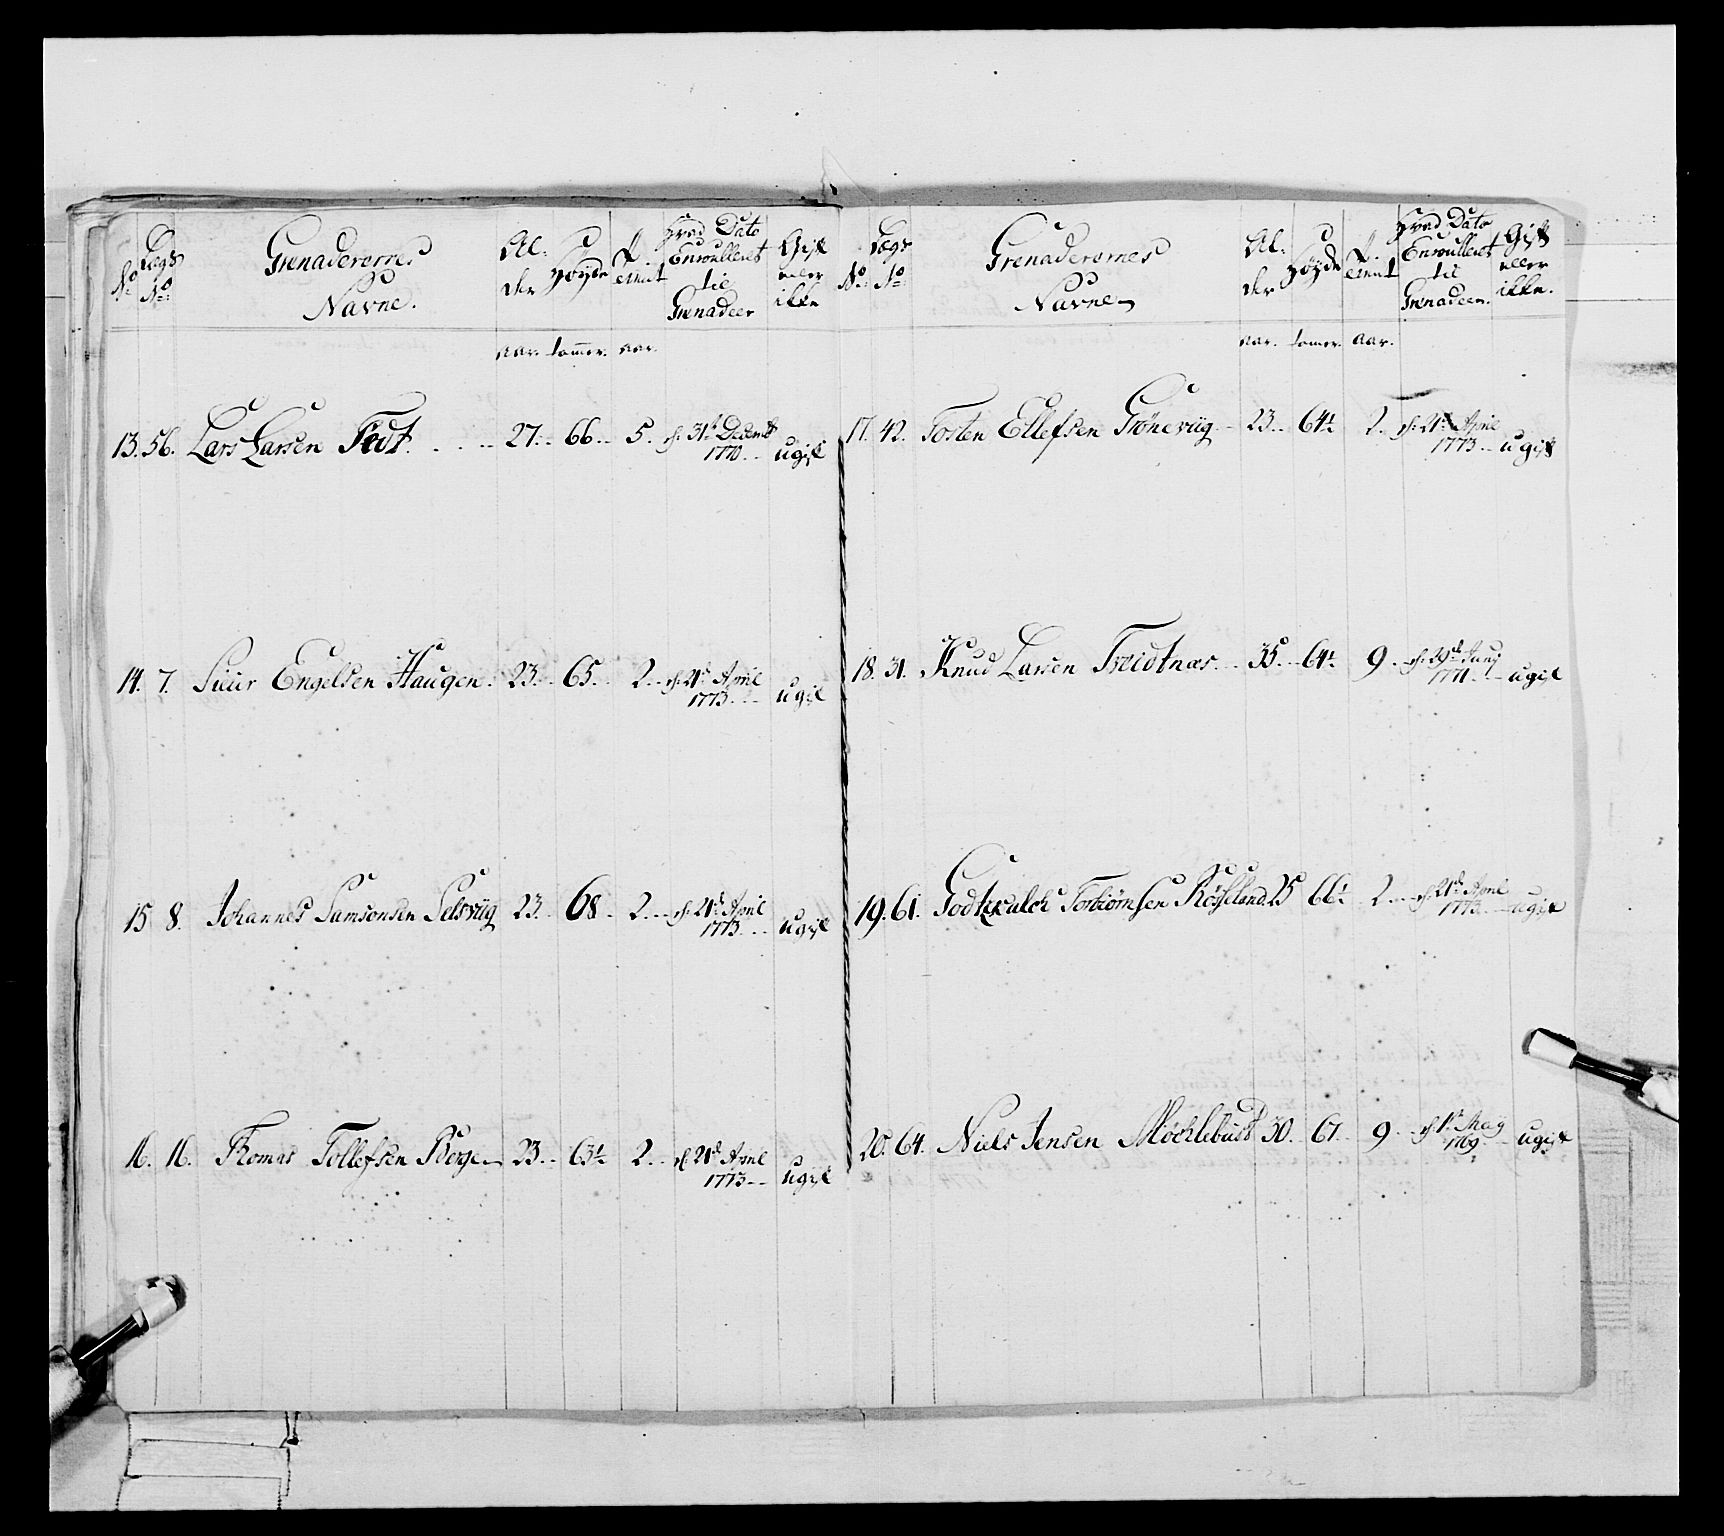 No Lægs No
Grenaderernes Navne.
Al: der
Høyde
Hvad Dato Enroullert til Grenadeer
Gift eller ikke
aar. tommer. aar.
13. 56. Lars Larsen Tvet. 27. 66. 5. d. 31t Decemb 1770. ugift
14. 7. Siur Engelsen Haugen. 23. 65. 2. d. 21d April 1773. ugift
15. 8. Johannes Samsonsen Selsviig 23. 68. 2. d. 21d April 1773. ugift
16. 16. Thomas Tollefsen Berge 23. 63½ 2. d. 21d April 1773 ugift
No: Lægs No
Grenaderernes Navne
Al: der
Høyde
Hvad Dato Enroullert til Grenadeer.
Gift eller ikke.
aar. tomer. aar.
17. 42. Tosten Ellefsen Grøneviig. 23. 64½ 2. d. 21d April 1773 ugift
18. 31. Knud Larsen Tveidtnæs. 35. 64½ 9. d. 29d Junj 1771 ugift
19. 61. Godtskalck Torbiørnsen Røseland. 25 66½ 2. d. 21d April 1773. ugift
20. 64. Niels Jensen Møchlebust 30. 67. 9. d. 1t Maÿ 1769. ugift